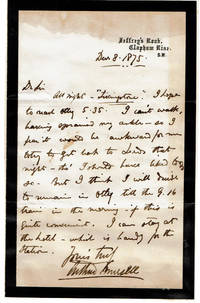 Jeffrey's Road,
Clapham Rise,
S.W.
Dec 3. 1875.
Dr Sir
All right - "Livingstone" I hope
to reach Otley 5.35. I can't walk
having sprained my ankle - so I
fear it would be awkward for me
to get back to Leeds that
night - tho' I should have liked to
so. But I think I will decide
to remain in Otley till the 9.16
train in the morning - if this is
quite convenient. I can stay at
the hotel - which is handy for the
station.
Yours truly
Arthur Mursell